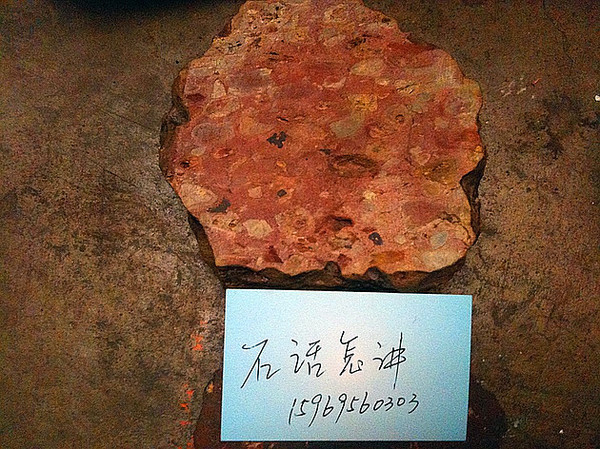 石话怎讲
15969560303